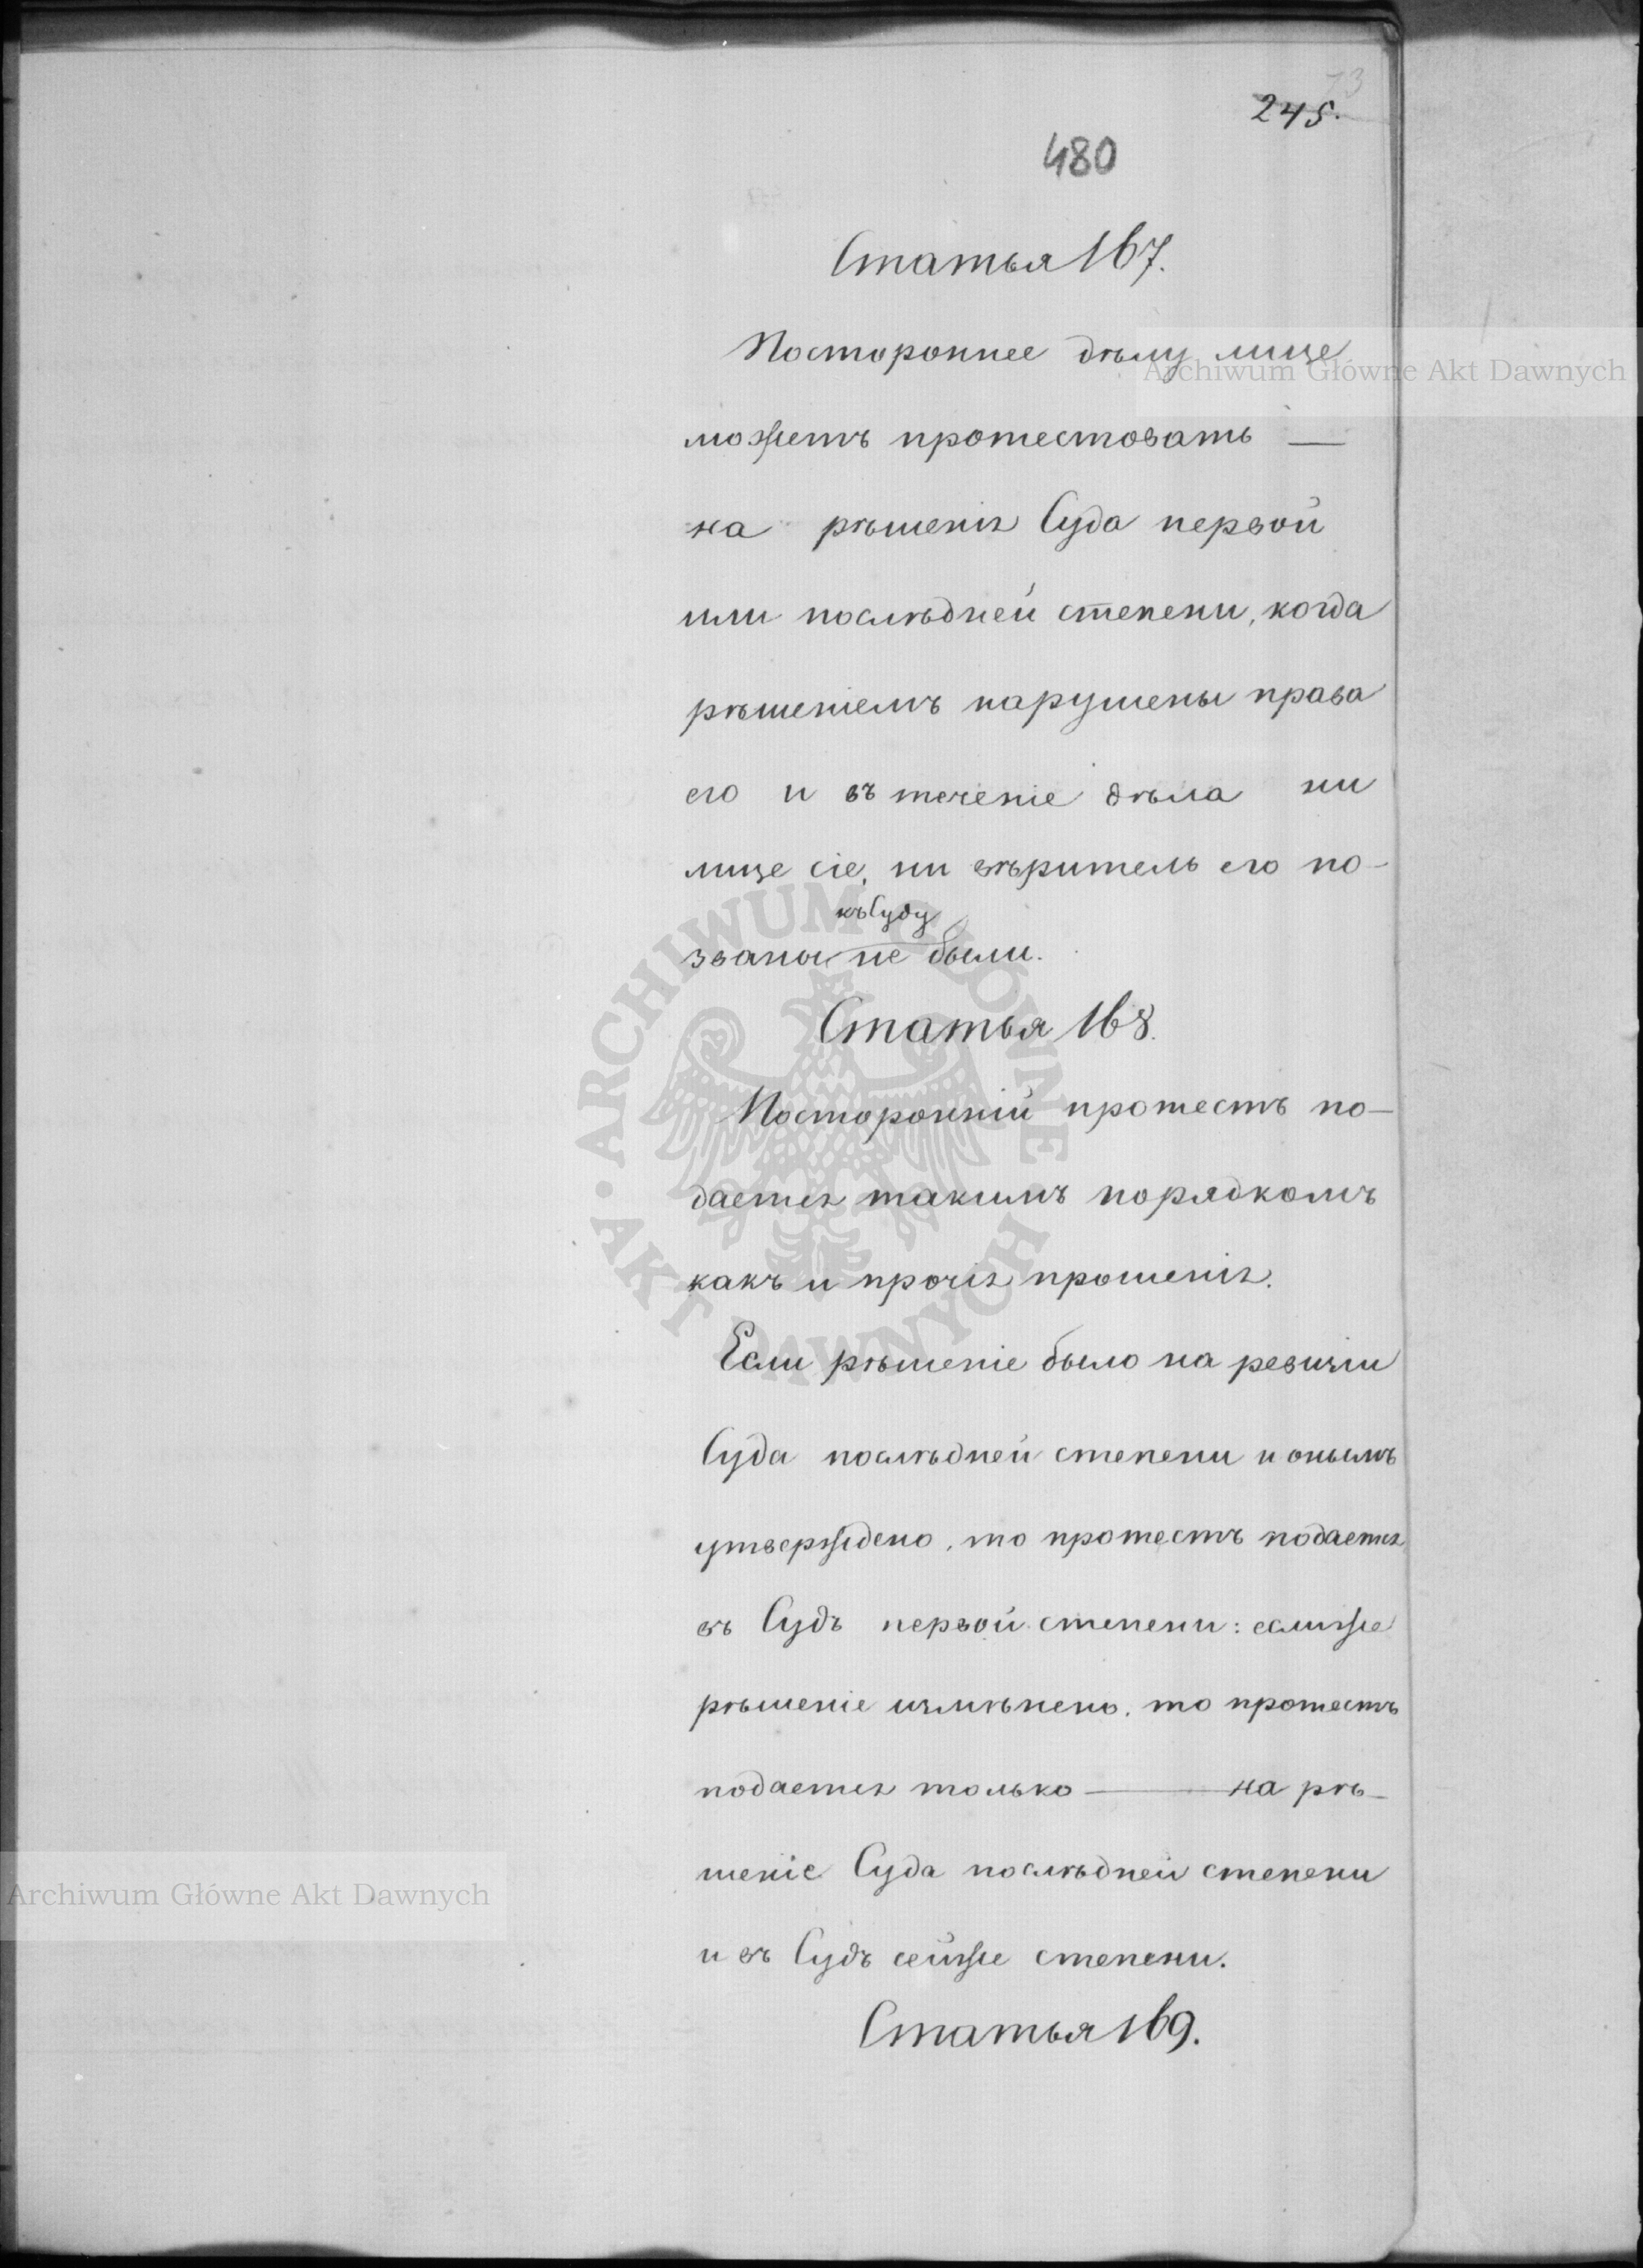 73
245.
480
Статья 167.
Постороннее дѣлу лице
можетъ протестовать —
на рѣшенія Суда первой
или послѣдней степени, когда
рѣшеніемъ нарушены права
его и въ теченіе дѣла ни
лице сіе, ни вѣритель его по-
къ Суду
званы не были.
Статья 168.
Посторонній протестъ по-
дается такимъ порядкомъ
какъ и прочія прошенія.
Если рѣшеніе было на ревизіи
Суда послѣдней степени и онымъ
утверждено, то протестъ подается
въ Судъ первой степени: еслиже
рѣшеніе измѣнено, то протестъ
подается только — на рѣ-
шеніе Суда послѣдней степени
и въ Судъ сейже степени.
Статья 169.
Archiwum Główne Akt Dawnych
Archiwum Główne Akt Dawnych
ARCHIWUM GŁÓWNE · AKT DAWNYCH ·